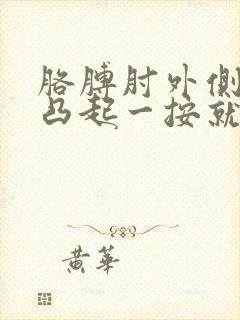 胳膊肘外側
凸起一按就
黄華